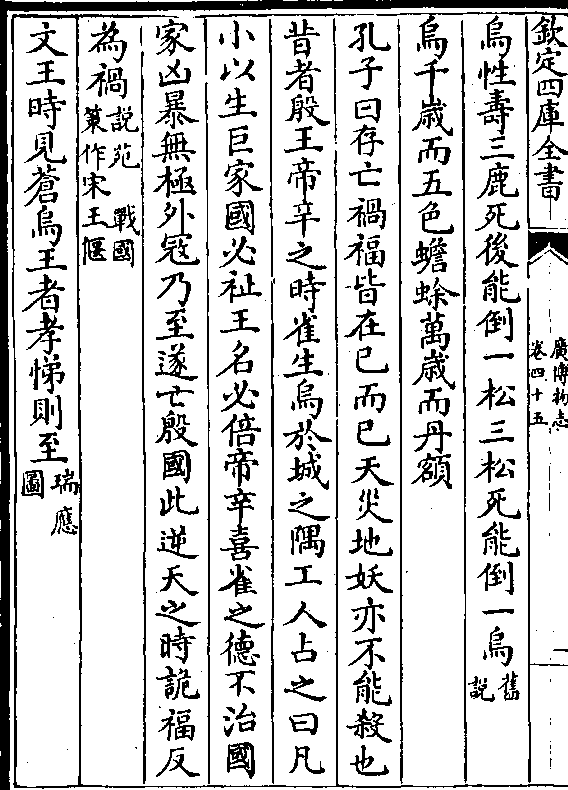 欽定四庫全書
廣博物志
卷四十五
一
烏性壽三鹿死後能倒一松三松死能倒一烏舊說
烏千歲而五色蟾蜍萬歲而丹額
孔子曰存亡禍福皆在已而已天災地妖亦不能殺也
昔者殷王帝辛之時雀生烏於城之隅工人占之曰凡
小以生巨家國必祉王名必倍帝辛喜雀之德不治國
家凶暴無極外冦乃至遂亡殷國此逆天之時詭福反
為禍說苑 戰國策作宋王偃
文王時見蒼烏王者孝悌則至瑞應圖